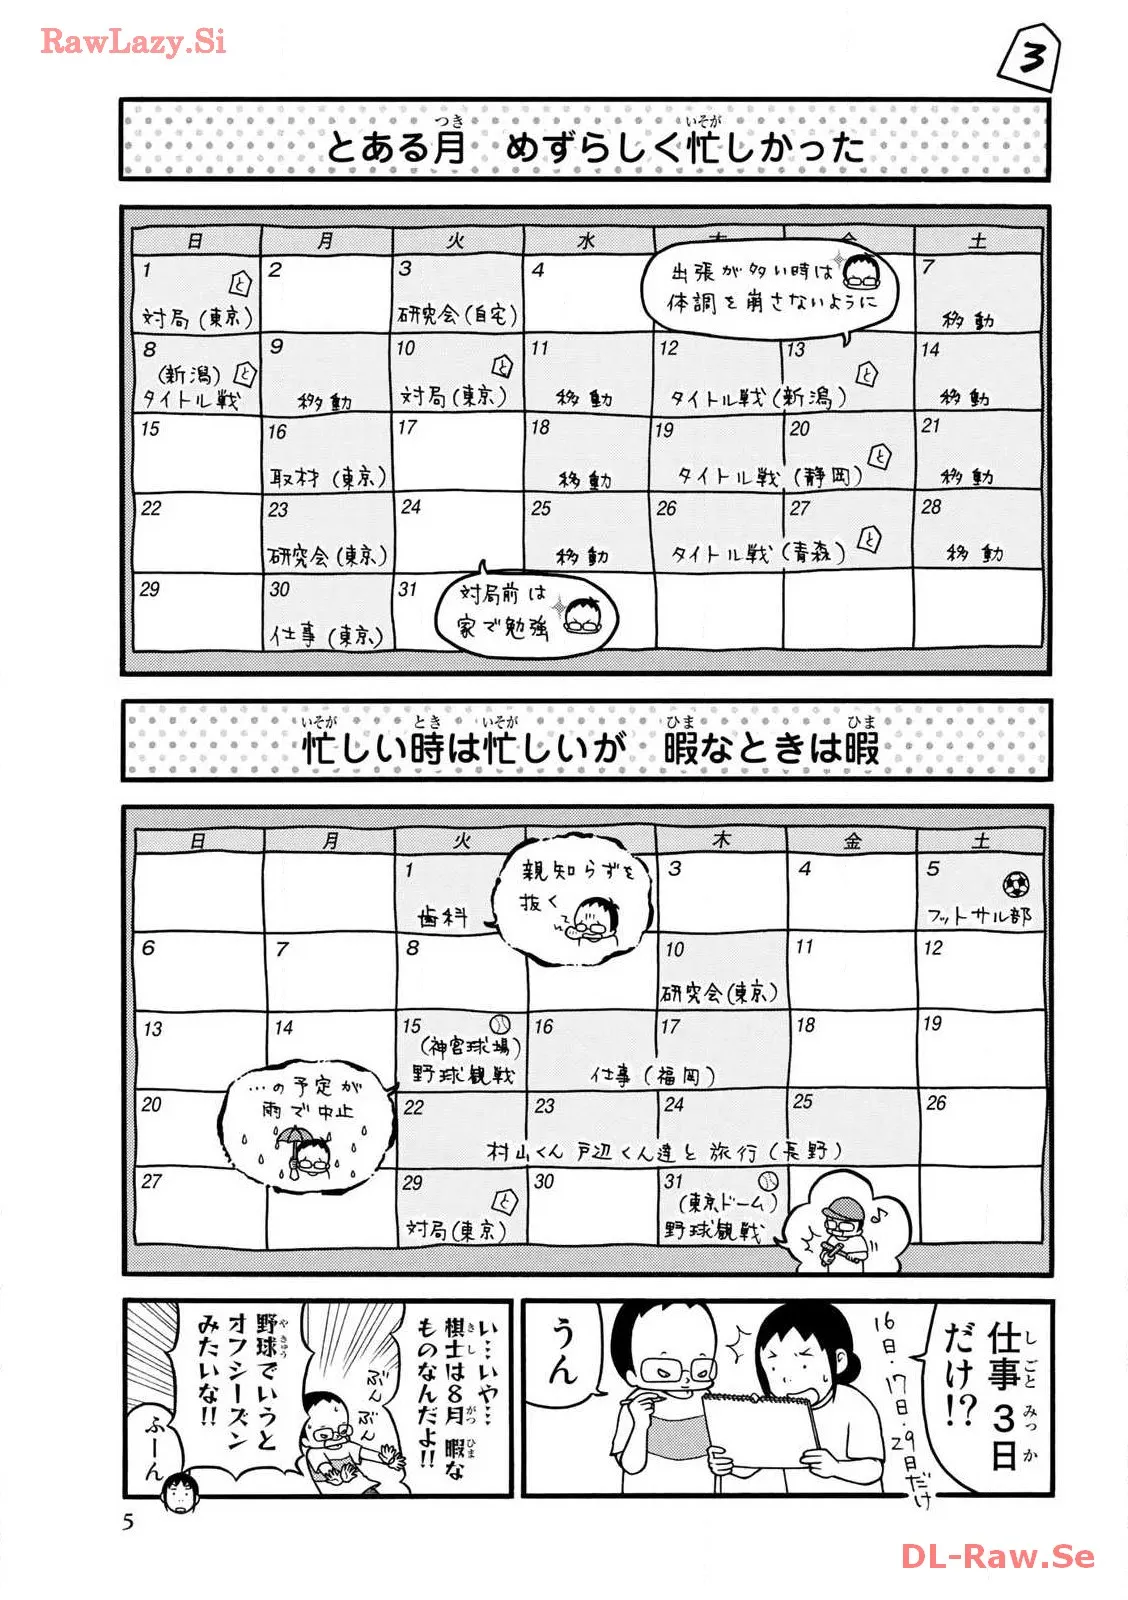 RawLazy.Si
3
とある月　めずらしく忙しかった
つき
いそが
日 月 火 水 木 金 土
1
と
対局(東京)
2
3
研究会(自宅)
4
出張が多い時は
体調を崩さないように
7
移動
8
(新潟)
と
タイトル戦
9
移動
10
と
対局(東京)
11
移動
12
13
と
タイトル戦(新潟)
14
移動
15
16
取材(東京)
17
18
移動
19
20
と
タイトル戦(静岡)
21
移動
22
23
研究会(東京)
24
25
移動
26
27
と
タイトル戦(青森)
28
移動
29
30
仕事(東京)
31
対局前は
家で勉強
忙しい時は忙しいが　暇なときは暇
いそが
とき
いそが
ひま
ひま
日 月 火 木 金 土
1
歯科
親知らずを
抜く
3
4
5
フットサル部
6
7
8
10
研究会(東京)
11
12
13
14
15
(神宮球場)
野球観戦
16
17
仕事(福岡)
18
19
…の予定が
雨で中止
20
22
23
24
25
村山くん 戸辺くん達と旅行(長野)
26
27
29
と
対局(東京)
30
31
(東京ドーム)
野球観戦
♪
仕事3日
しごとみっか
だけ!?
16日・17日・29日だけ
うん
い…いや…
棋士は8月 暇な
きし
がつ
ひま
ものなんだよ!!
ぶんぶん
野球でいうと
やきゅう
オフシーズン
みたいな!!
ふーん
5
DL-Raw.Se